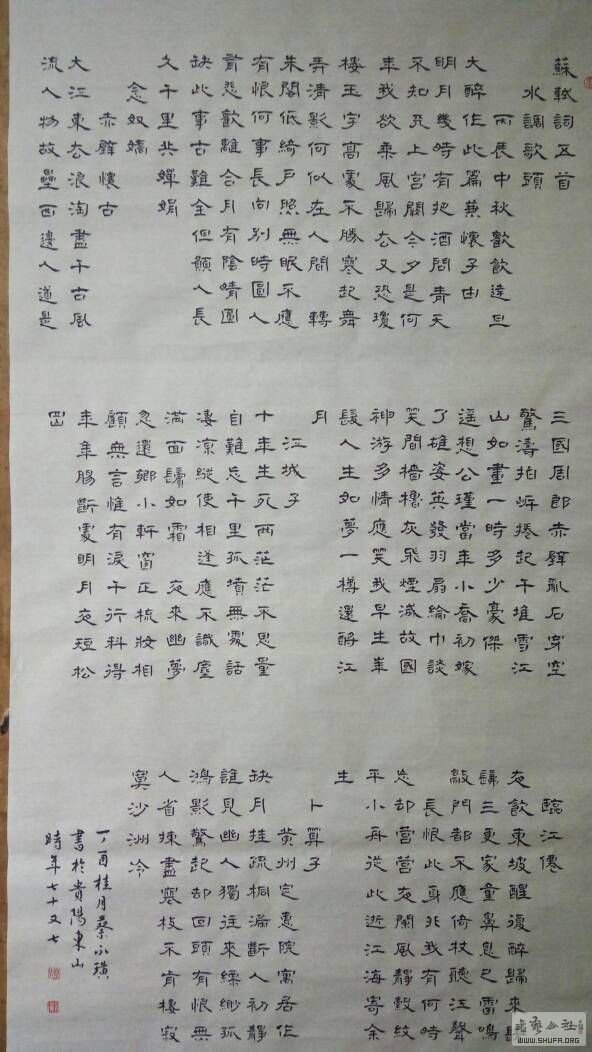 蘇軾詞五首
水調歌頭
丙辰中秋歡飲達旦
大醉作此篇兼懷子由
明月幾時有把酒問青天
不知天上宮闕今夕是何
年我欲乘風歸去又恐瓊
樓玉宇高處不勝寒起舞
弄清影何似在人間轉
朱閣低綺戶照無眠不應
有恨何事長向別時圓人
有悲歡離合月有陰晴圓
缺此事古難全但願人長
久千里共嬋娟
念奴嬌
赤壁懷古
大江東去浪淘盡千古風
流人物故壘西邊人道是
三國周郎赤壁亂石穿空
驚濤拍岸捲起千堆雪江
山如畫一時多少豪傑
遙想公瑾當年小喬初嫁
了雄姿英發羽扇綸巾談
笑間檣櫓灰飛煙滅故國
神游多情應笑我早生華
髮人生如夢一樽還酹江
月
江城子
十年生死兩茫茫不思量
自難忘千里孤墳無處話
淒涼縱使相逢應不識塵
滿面鬢如霜夜來幽夢
忽還鄉小軒窗正梳妝相
顧無言惟有淚千行料得
年年腸斷處明月夜短松
岡
臨江僊
夜飲東坡醒復醉歸來
三更家童鼻息已雷鳴
敲門都不應倚杖聽江聲
長恨此身非我有何時
忘卻營營夜闌風靜縠紋
平小舟從此逝江海寄余
生
卜算子
黃州定惠院寓居作
缺月挂疏桐漏斷人初靜
誰見幽人獨往來縹緲孤
鴻影驚起却回頭有恨無
人省揀盡寒枝不肯棲寂
寞沙洲冷
丁酉桂月蔡永璜
書於貴陽東山
時年七十又七
WWW.SHUFA.ORG